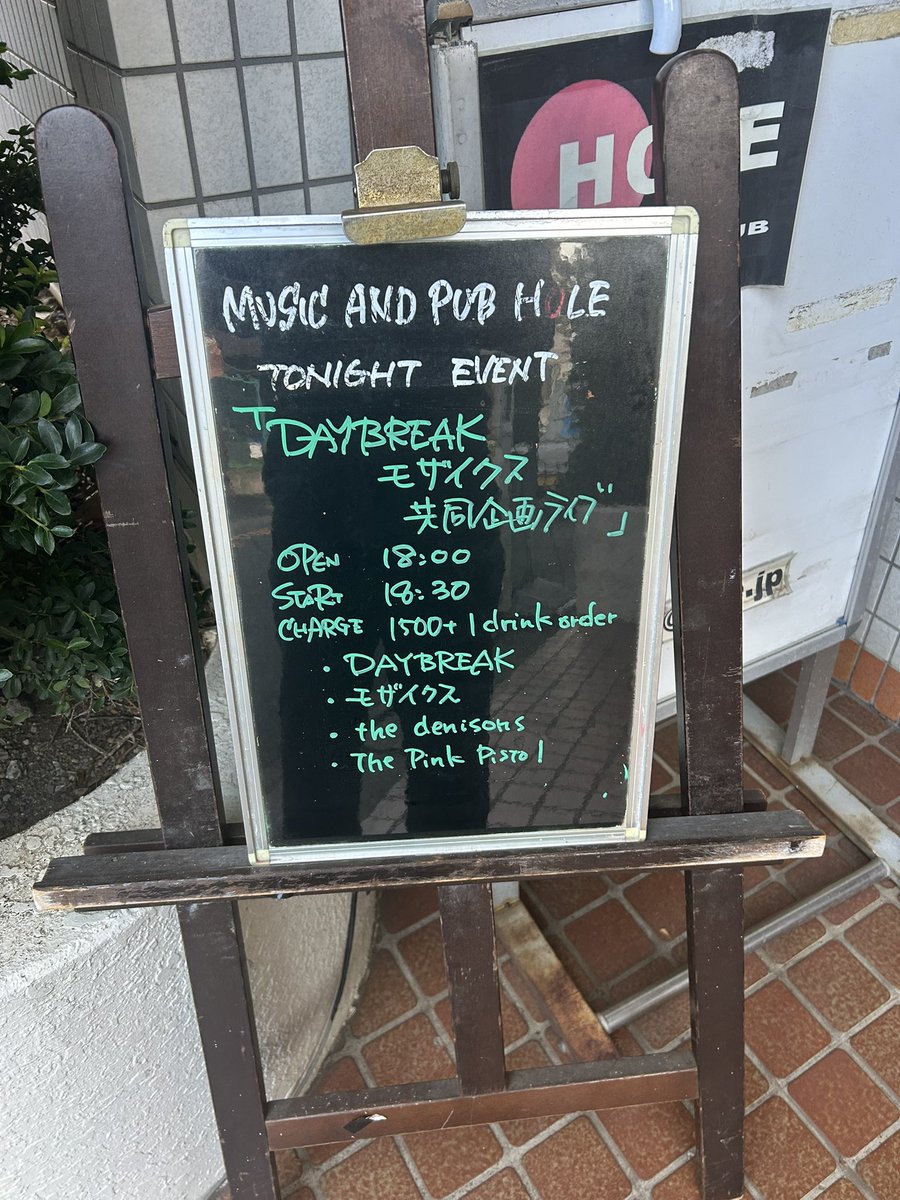 HOLE
UB
MUSIC AND PUB HOLE
TONIGHT EVENT
「DAYBREAK
モザイクス
共同企画ライブ」
OPEN 18:00
START 18:30
CHARGE 1500+1 drink order
・DAYBREAK
・モザイクス
・the denisons
・The Pink Pistol
-jp